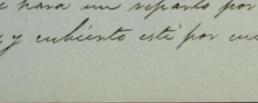 hara un reparto por
y cubierto este por